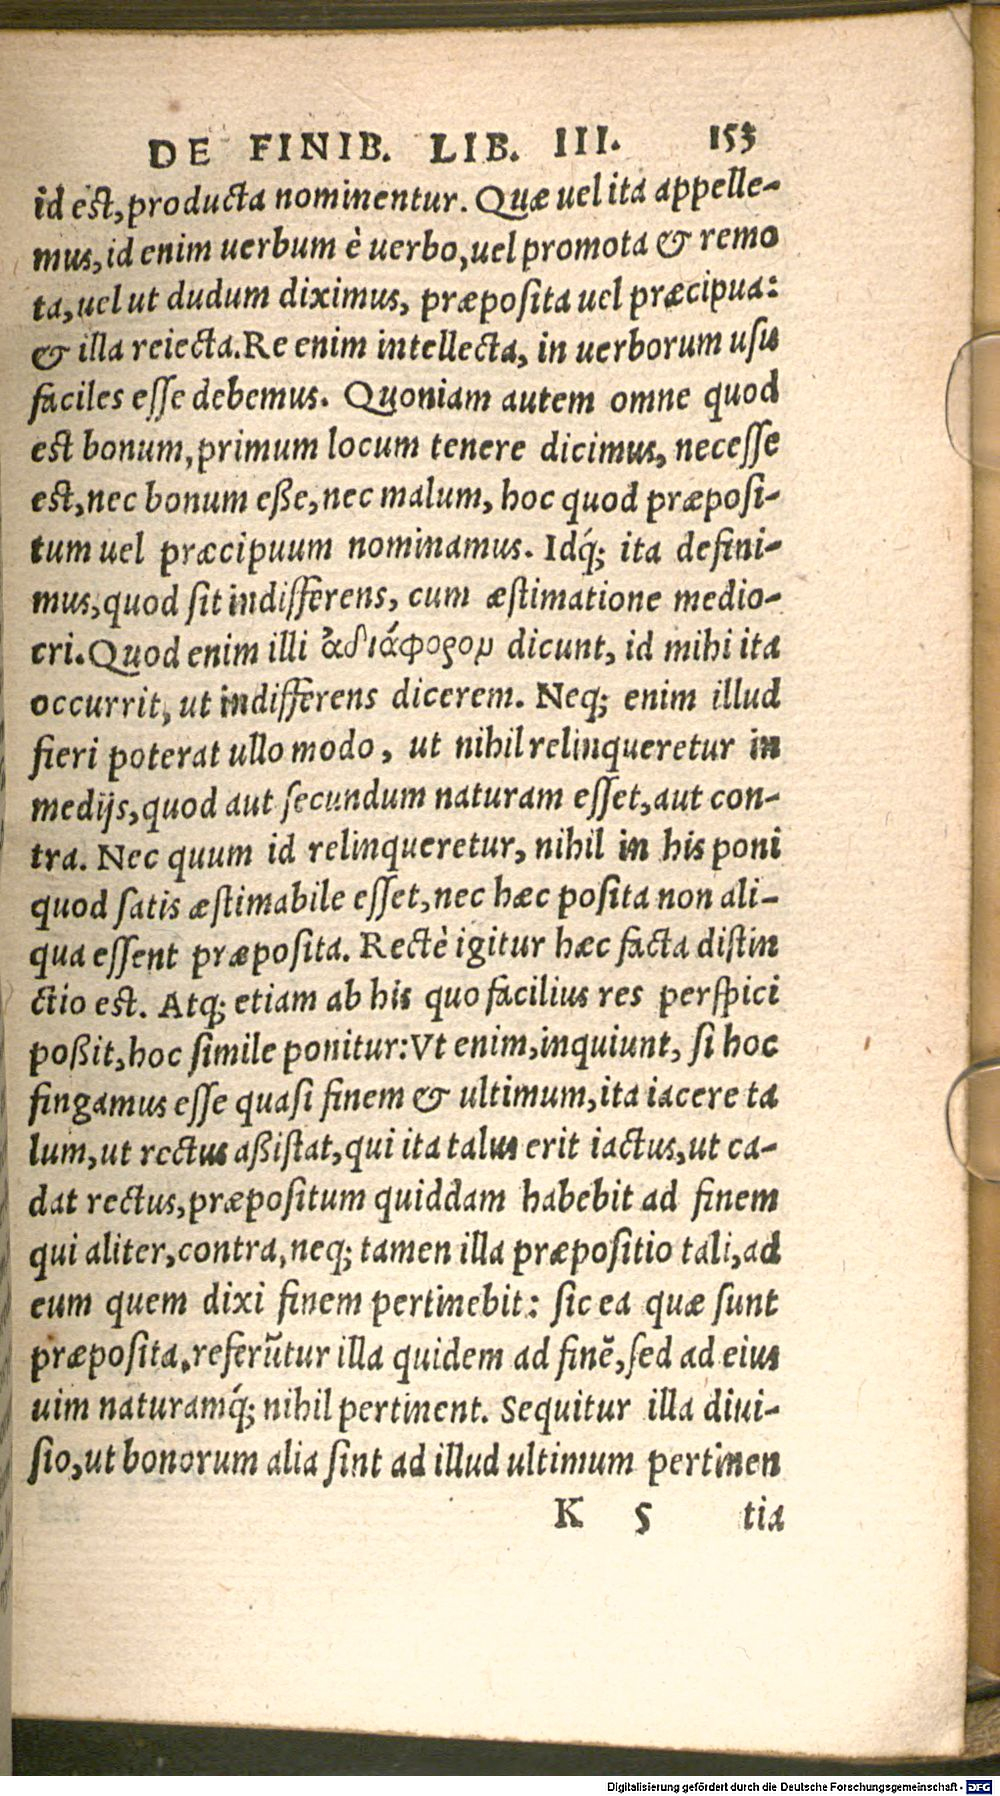 DE FINIB. LIB. III. 153
id est, producta nominentur. Quæ uel ita appelle-
mus, id enim uerbum è uerbo, uel promota & remo
ta, uel ut dudum diximus, præposita uel præcipua:
& illa reiecta. Re enim intellecta, in uerborum uſu
faciles eſſe debemus. Quoniam autem omne quod
est bonum, primum locum tenere dicimus, neceſſe
est, nec bonum eße, nec malum, hoc quod præpoſi-
tum uel præcipuum nominamus. Idq́; ita defini-
mus, quod ſit indifferens, cum æſtimatione medio-
cri. Quod enim illi ἀδιάφορον dicunt, id mihi ita
occurrit, ut indifferens dicerem. Neq; enim illud
fieri poterat ullo modo, ut nihil relinqueretur in
medijs, quod aut ſecundum naturam eſſet, aut con-
tra. Nec quum id relinqueretur, nihil in his poni
quod ſatis æſtimabile eſſet, nec hæc poſita non ali-
qua eſſent præpoſita. Rectè igitur hæc facta diſtin
ctio est. Atq; etiam ab his quo facilius res perſpici
poßit, hoc ſimile ponitur: Vt enim, inquiunt, ſi hoc
fingamus eſſe quaſi finem & ultimum, ita iacere ta
lum, ut rectus aßiſtat, qui ita talus erit iactus, ut ca-
dat rectus, præpoſitum quiddam habebit ad finem
qui aliter, contra, neq; tamen illa præpoſitio tali, ad
eum quem dixi finem pertinebit: ſic ea quæ ſunt
præpoſita, referũtur illa quidem ad finẽ, ſed ad eius
uim naturamq́; nihil pertinent. Sequitur illa diui-
ſio, ut bonorum alia ſint ad illud ultimum pertinen
K 5 tia
Digitalisierung gefördert durch die Deutsche Forschungsgemeinschaft - DFG